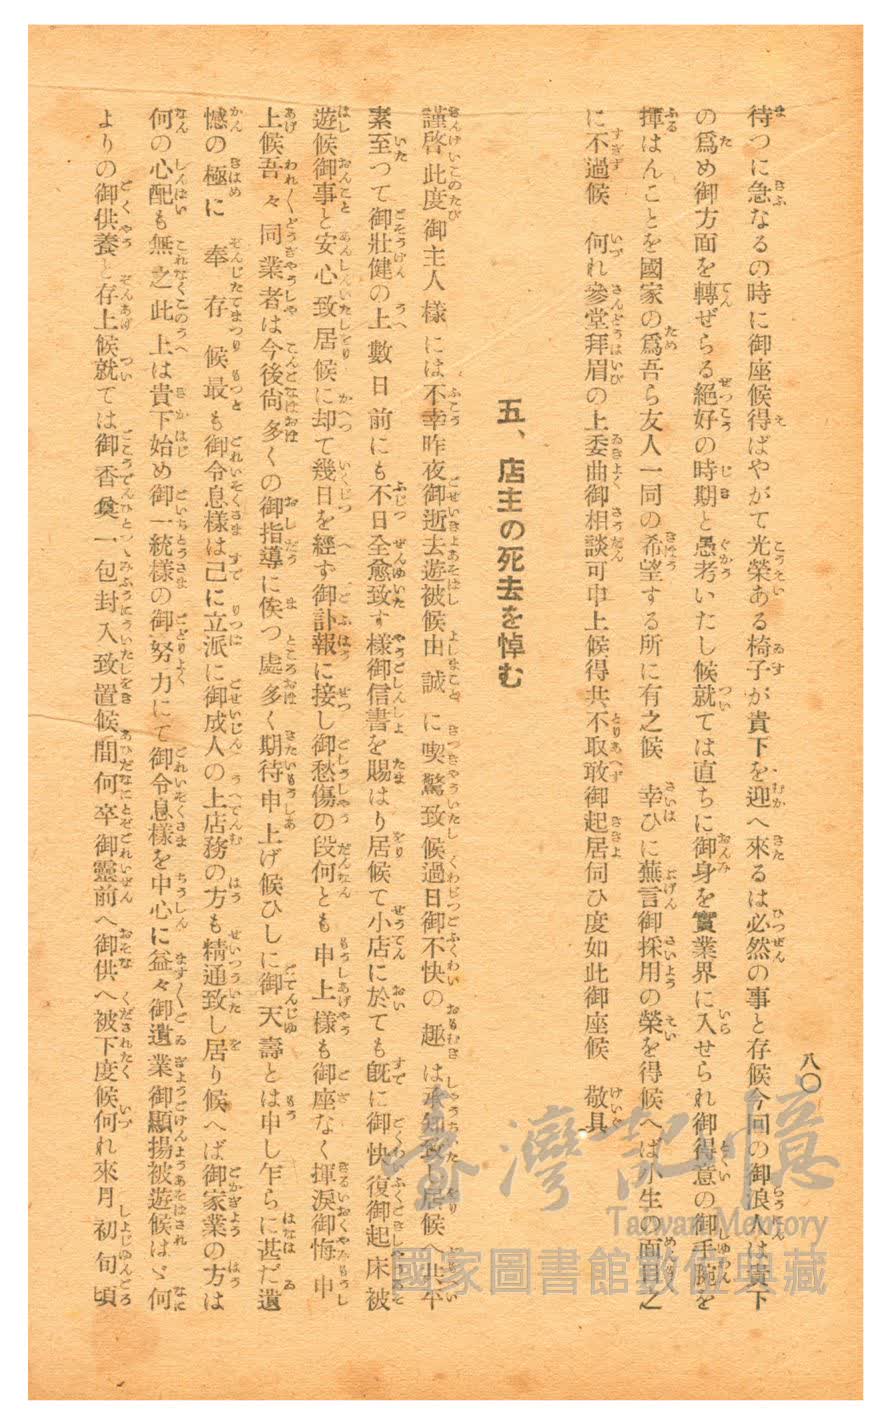 八〇
待つに急なるの時に御座候得ばやがて光榮ある椅子が貴下を迎へ來るは必然の事と存候今回の御浪人は貴下
の爲め御方面を轉ぜらる絕好の時期と愚考いたし候就ては直ちに御身を實業界に入せられ御得意の御手腕を
揮はんことを國家の爲吾ら友人一同の希望する所に有之候　幸ひに蕪言御採用の榮を得候へば小生の面目之
に不過候　何れ參堂拜眉の上委曲御相談可申上候得共不取敢御起居伺ひ度如此御座候　敬具
五、店主の死去を悼む
謹啓此度御主人樣には不幸昨夜御逝去遊被候由誠に喫驚致候過日御不快の趣は承知致し居候へ共平
素至つて御壯健の上數日前にも不日全愈致す樣御信書を賜はり居候て小店に於ても旣に御快復御起床被
遊候御事と安心致居候に却て幾日を經ず御訃報に接し御愁傷の段何とも申上樣も御座なく揮淚御悔申
上候吾々同業者は今後尙多くの御指導に俟つ處多く期待申上げ候ひしに御天壽とは申し乍らに甚だ遺
憾の極に奉存候最も御令息樣は己に立派に御成人の上店務の方も精通致し居り候へば御家業の方は
何の心配も無之此上は貴下始め御一統樣の御努力にて御令息樣を中心に益々御遺業御顯揚被遊候はゞ何
よりの御供養と存上候就ては御香奠一包封入致置候間何卒御靈前へ御供へ被下度候何れ來月初旬頃
臺灣記憶
Taiwan Memory
國家圖書館數位典藏